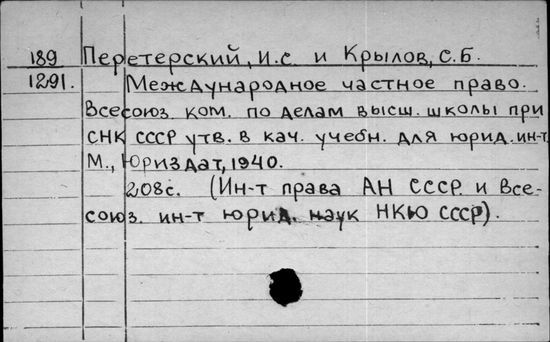 189 Перетерский, И.С. и Крылов, С.Б.
1291. Международное частное право.
Всесоюз. ком. по делам высш. школы при
СНК СССР утв. в кач. учебн. для юрид. ин-т.
М., Юриздат, 1940.
208с. (Ин-т права АН СССР и Все-
союз. ин-т юрид. наук НКЮ СССР).